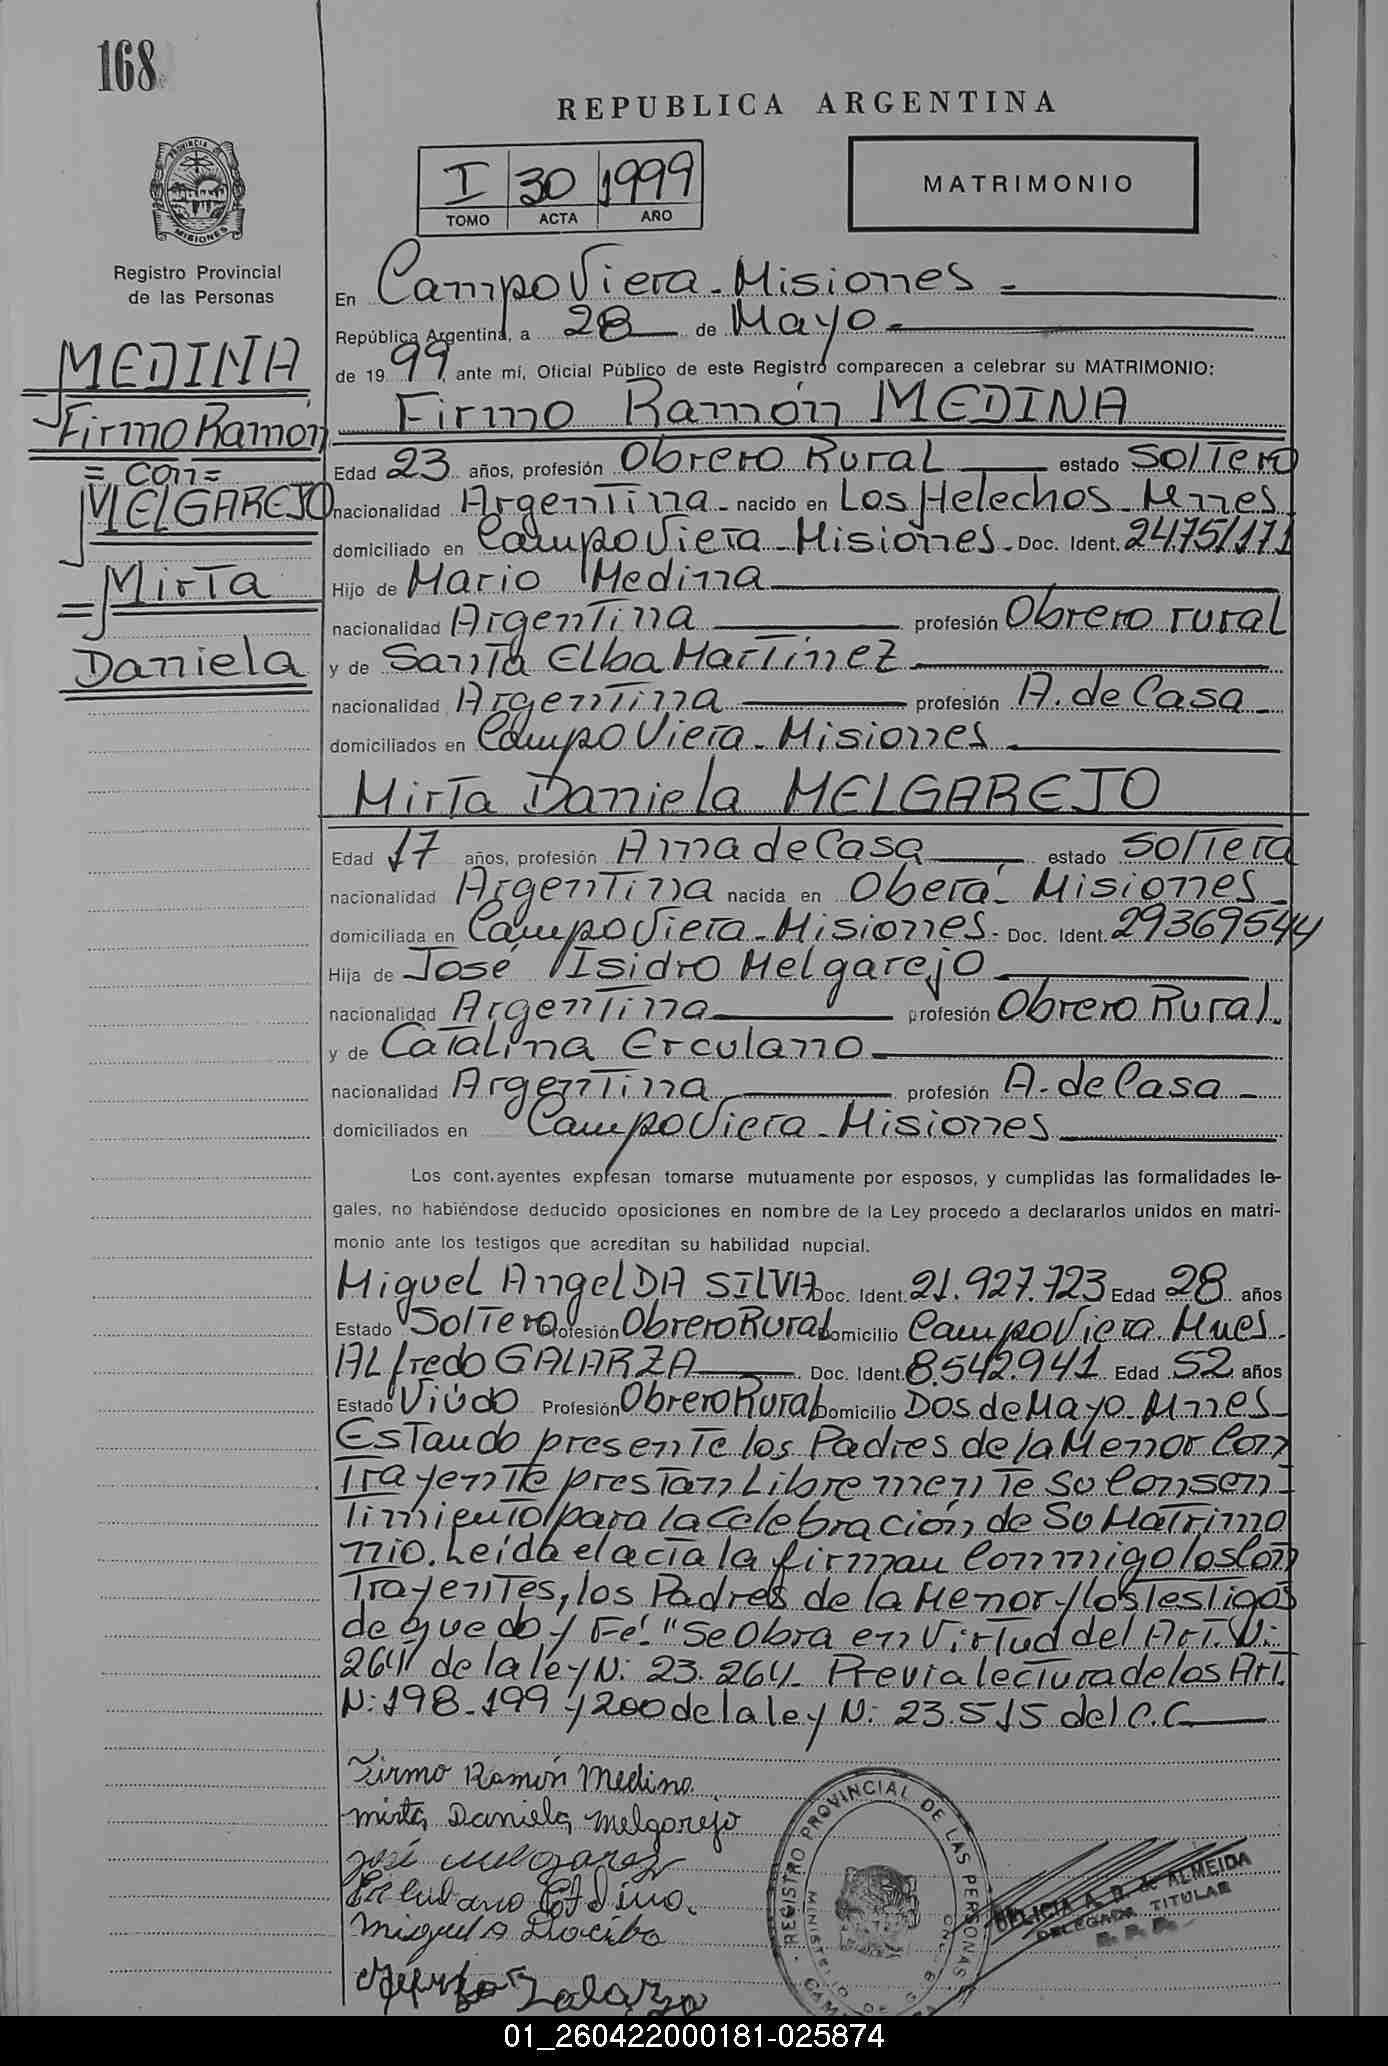 168
REPUBLICA ARGENTINA
I 30 1999
TOMO ACTA AÑO
MATRIMONIO
PROVINCIA DE
MISIONES
Registro Provincial
de las Personas
MEDINA
Firmo Ramón
= con =
MELGAREJO
= Mirta
Daniela
En Campo Viera - Misiones -
República Argentina, a 28 de Mayo -
de 1999, ante mí, Oficial Público de este Registro comparecen a celebrar su MATRIMONIO:
Firmo Ramón MEDINA
Edad 23 años, profesión Obrero Rural estado Soltero
nacionalidad Argentina - nacido en Los Helechos - Mnes
domiciliado en Campo Viera - Misiones - Doc. Ident. 24751171
Hijo de Mario Medina
nacionalidad Argentina profesión Obrero rural
y de Santa Elba Martinez
nacionalidad Argentina profesión A. de Casa -
domiciliados en Campo Viera - Misiones
Mirta Daniela MELGAREJO
Edad 17 años, profesión Ama de Casa estado Soltera
nacionalidad Argentina nacida en Oberá - Misiones -
domiciliada en Campo Viera - Misiones - Doc. Ident. 29369544
Hija de José Isidro Melgarejo
nacionalidad Argentina profesión Obrero Rural.
y de Catalina Erculano
nacionalidad Argentina profesión A. de Casa -
domiciliados en Campo Viera - Misiones
Los contrayentes expresan tomarse mutuamente por esposos, y cumplidas las formalidades le-
gales, no habiéndose deducido oposiciones en nombre de la Ley procedo a declararlos unidos en matri-
monio ante los testigos que acreditan su habilidad nupcial.
Miguel Angel DA SILVA Doc. Ident. 21.927.723 Edad 28 años
Estado Soltero Profesión Obrero Rural Domicilio Campo Viera - Mnes.
Alfredo GALARZA Doc. Ident. 8.542.941 Edad 52 años
Estado Viúdo Profesión Obrero Rural Domicilio Dos de Mayo - Mnes -
Estando presente los Padres de la Menor Con
trayente prestan Libremente su Consen-
timiento para la Celebración de Su Matrimo
nio. Leída el acta la firman Conmigo los Con
trayentes, los Padres de la Menor y los Testigos
de que doy Fé. "Se Obra en Virtud del Art. N:
264 de la ley N: 23.264 - Previa lectura de los Art.
N: 198 - 199 y 200 de la ley N: 23.515 del C.C
Firmo Ramón Medina
Mirta Daniela Melgarejo
José
Miguel A
Galarza
REGISTRO PROVINCIAL DE LAS PERSONAS
MINISTERIO DE GOB
DELICIA A. B. de ALMEIDA
DELEGADA TITULAR
R. P. P.
01_260422000181-025874